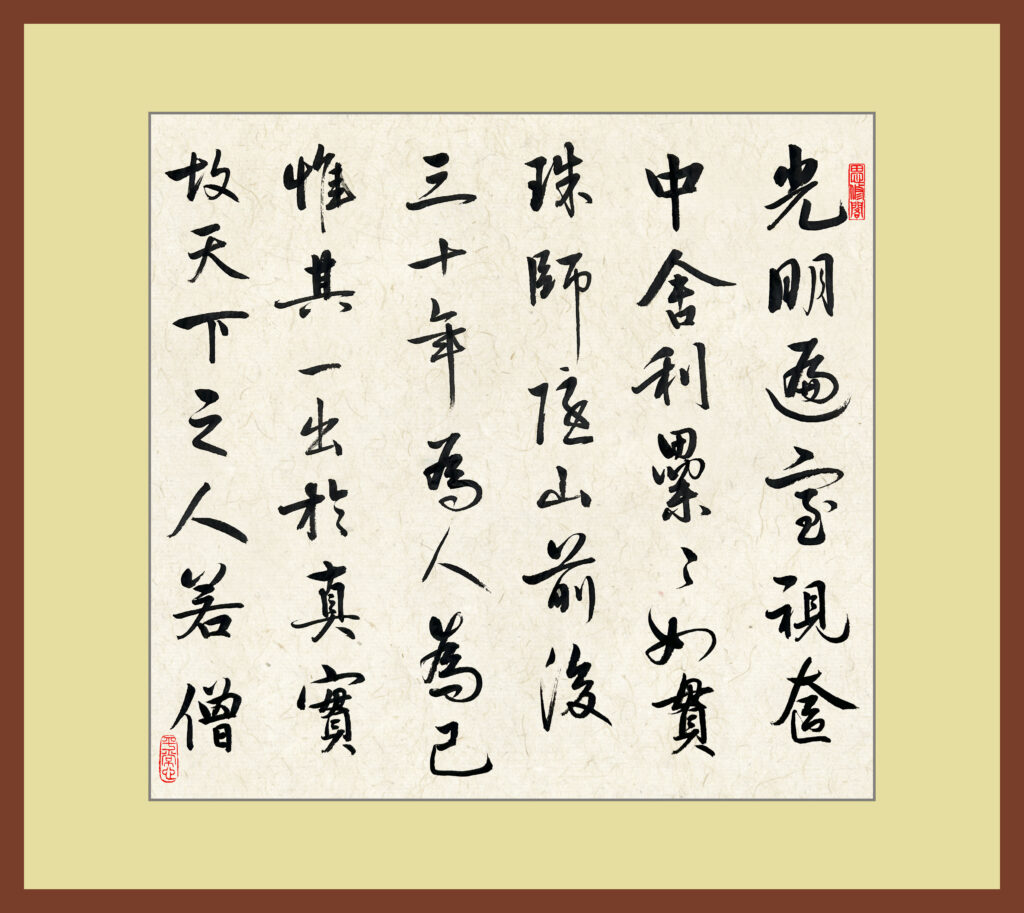 思修閣
光明遍室視奩
中舍利纍〻如貫
珠師隱山前後
三十年為人為己
惟其一出於真實
故天下之人若僧
平常心